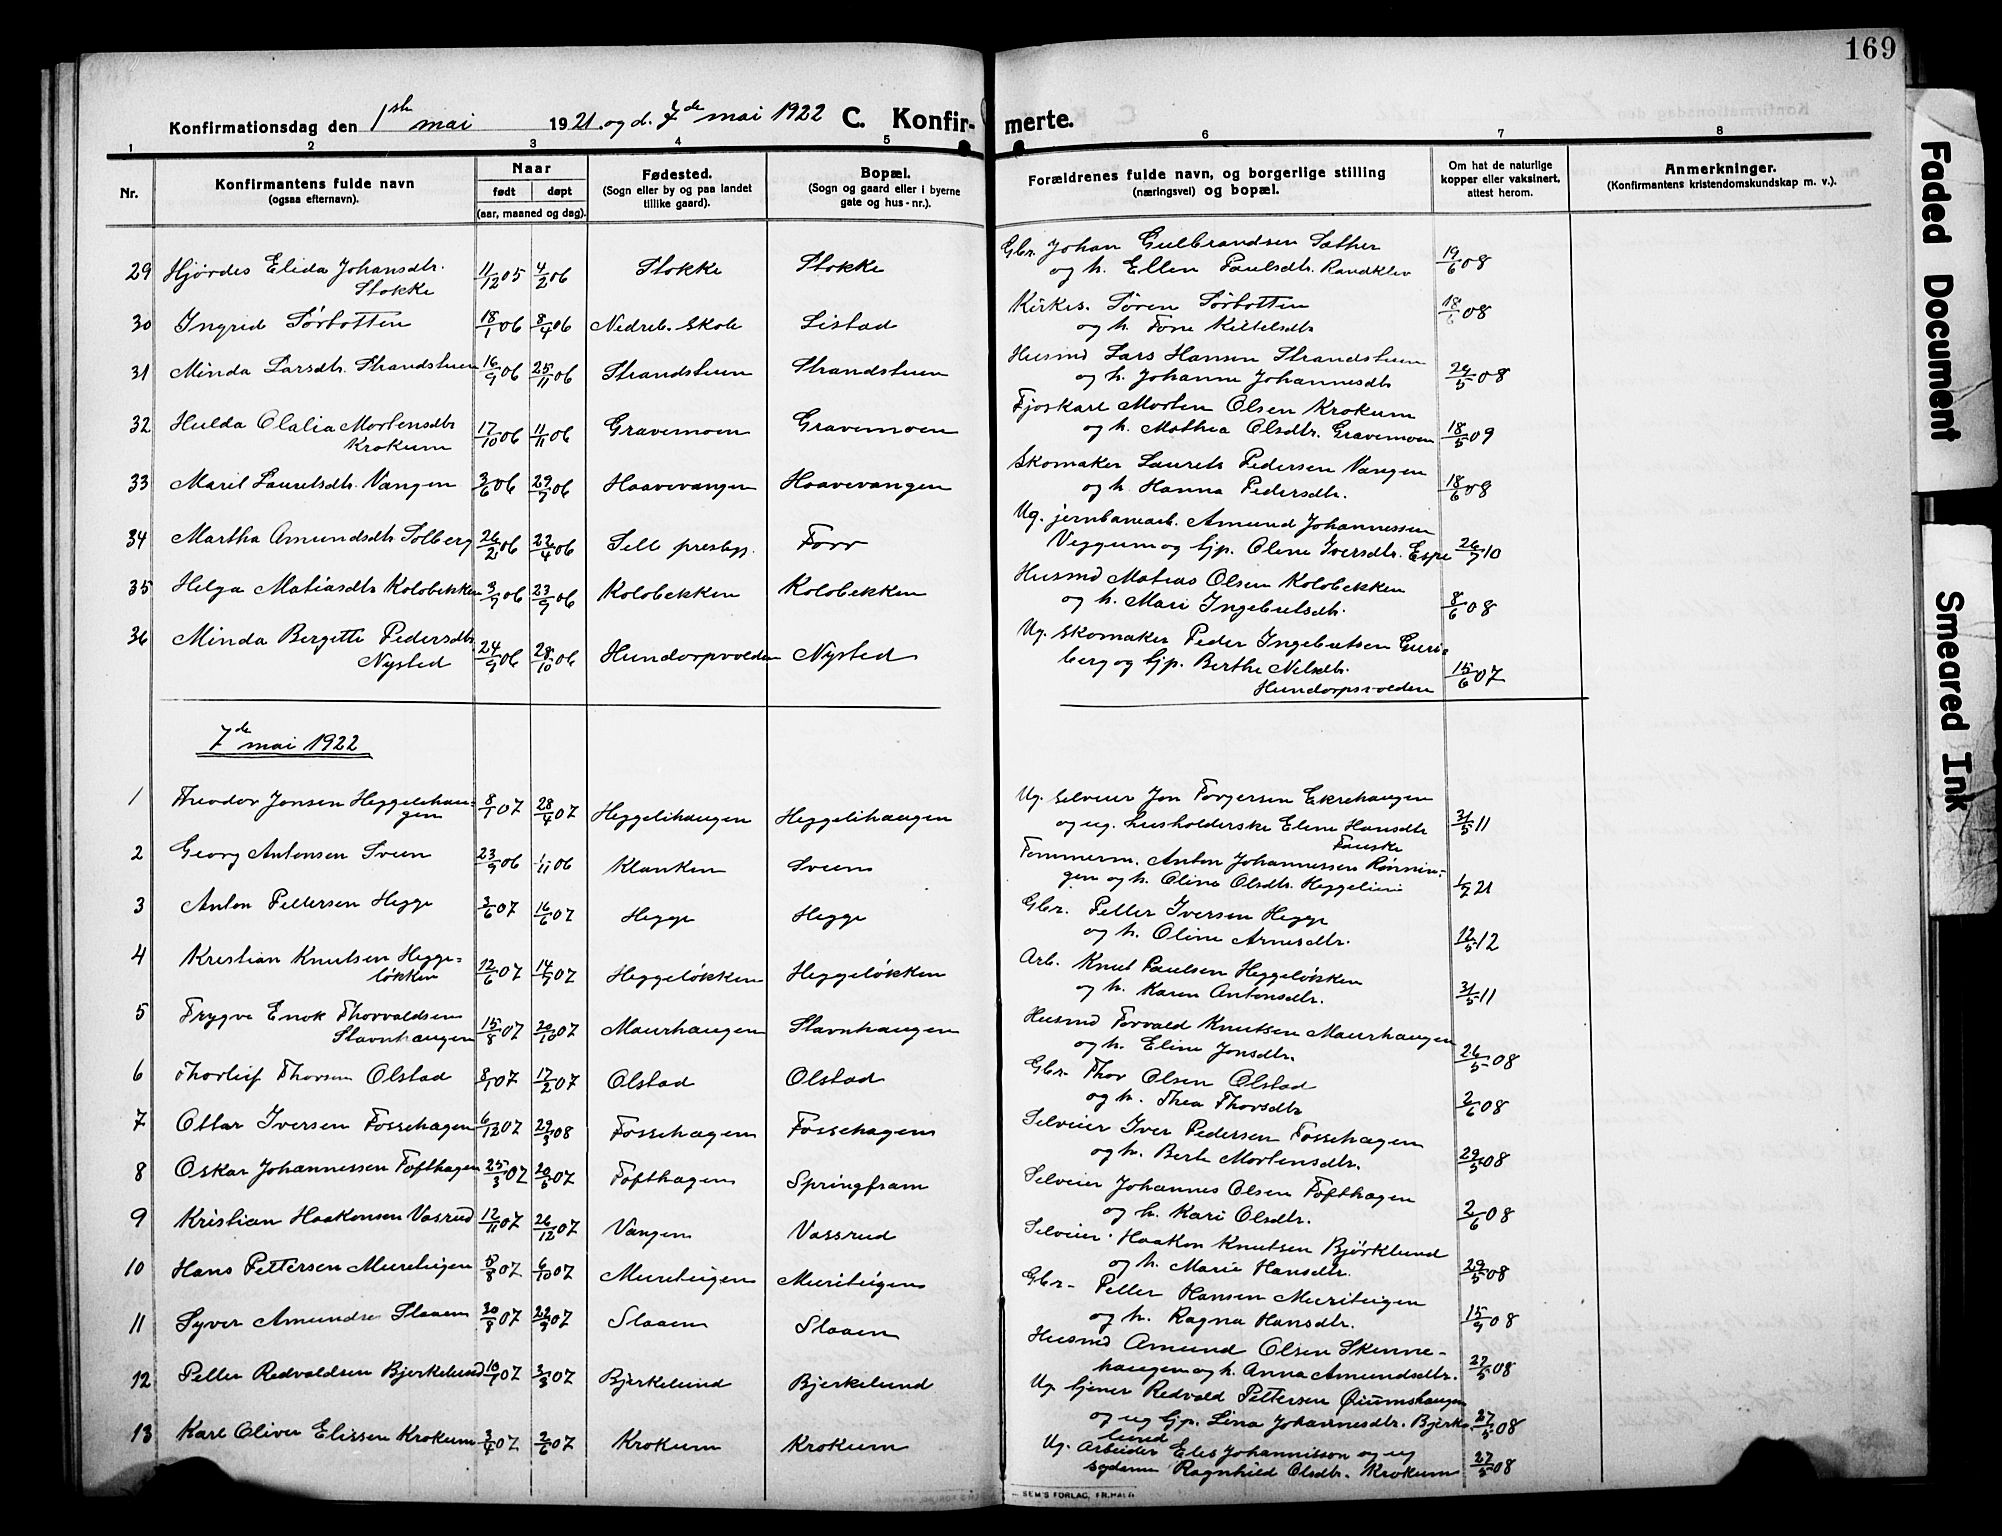 169
Konfirmationsdag den 1ste mai 1921 og d. 7de mai 1922 C. Konfir-merte.
1 2 3 4 5 6 7 8
Nr.
Konfirmantens fulde navn
(ogsaa efternavn).
Naar
født døpt
(aar, maaned og dag).
Fødested.
(Sogn eller by og paa landet
tillike gaard).
Bopæl.
(Sogn og gaard eller i byerne
gate og hus-nr.).
Forældrenes fulde navn, og borgerlige stilling
(næringsvei) og bopæl.
Om hat de naturlige
kopper eller vaksinert,
attest herom.
Anmerkninger.
(Konfirmantens kristendomskundskap m. v.).
29 Hjørdes Elida Johansdtr. 11/12 05 4/2 06 Stokke Stokke Gbr. Johan Gulbrandsen Sæther 19/6 08
Stokke og h. Ellen Paulsdtr. Randklev
30 Ingrid Sørbotten 18/1 06 8/4 06 Nedreb. skole Listad Kirkes. Søren Sørbotten 18/6 08
og h. Tone Kittelsdtr
31 Minda Larsdtr. Strandstuen 16/9 06 25/11 06 Strandstuen Strandstuen Husmd Lars Hansen Strandstuen
og h. Johanne Johannesdtr 24/5 08
32 Hulda Olalia Mortensdtr 17/10 06 11/11 06 Gravemoen Gravemoen Fjøskarl Morten Olsen Krokum
Krokum og h. Mathea Olsdtr. Gravemoen 18/5 09
33 Marit Lauritsdtr. Vangen 3/6 06 29/7 06 Haavevangen Haavevangen Skomaker Laurits Pedersen Vangen
og h. Hanna Pedersdtr. 18/6 08
34 Martha Amundsdtr Solberg 26/2 06 22/4 06 Sell presbgj. Forr Ug. jernbanearb. Amund Johannessen
Veggum og tjp. Oline Iversdtr. Espe 26/7 10
35 Helga Matiasdtr Kolobekken 3/9 06 23/9 06 Kolobekken Kolobekken Husmd Matias Olsen Kolobekken
og h. Mari Ingebretsdtr. 8/6 08
36 Minda Bergitte Pedersdtr 24/9 06 28/10 06 Hundorpvolden Nysted Ug. Skomaker Peder Ingebretsen Guri-
Nysted berg og tjp. Berthe Nilsdtr. 15/6 07
Hundorpsvolden
7de mai 1922
1 Theodor Jonsen Heggelihau- 8/1 07 28/4 07 Heggelihaugen Heggelihaugen Ug. Selveier Jon Torgersen Ekrehaugen
gen og ug. husholderske Eline Hansdtr 31/5 11
Fauske
2 Georg Antonsen Sveen 23/9 06 1/11 06 Klanken Sveen Tømmerm. Anton Johannessen Rønnin-
gen og h. Oline Olsdtr. Heggelien 1/7 21
3 Anton Pettersen Hegge 3/6 07 16/6 07 Hegge Hegge Gbr. Petter Iversen Hegge
og h. Oline Arnesdtr. 12/5 12
4 Kristian Knutsen Hegge- 12/6 07 14/7 07 Heggeløkken Heggeløkken Arb. Knut Paulsen Heggeløkken
løkken og h. Karen Antonsdtr. 31/5 11
5 Trygve Enok Thorvaldsen 15/8 07 20/10 07 Maurhaugen Stavnhaugen Husmd Torvald Knutsen Maurhaugen
Stavnhaugen og h. Eline Jonsdtr. 26/5 08
6 Thorleif Thorsen Olstad 8/1 07 17/2 07 Olstad Olstad Gbr. Thor Olsen Olstad
og h. Thea Thorsdtr 2/6 08
7 Ottar Iversen Fossehagen 6/12 07 29/3 08 Fossehagen Fossehagen Selveier Iver Pedersen Fossehagen
og h. Berte Mortensdtr. 29/5 08
8 Oskar Johannessen Tofthagen 25/3 07 20/5 07 Tofthagen Springfram Selveier Johannes Olsen Tofthagen
og h. Kari Olsdtr. 2/6 08
9 Kristian Haakonsen Vasrud 12/11 07 26/12 07 Vangen Vassrud Selveier Haakon Knutsen Bjørklund
og h. Marie Hansdtr. 29/5 08
10 Hans Pettersen Muriteigen 8/8 07 6/10 07 Muriteigen Muriteigen Gbr- Petter Hansen Muriteigen
og h. Ragna Hansdtr. 15/9 08
11 Syver Amundsen Slaaen 30/8 07 29/9 07 Slaaen Slaaen Husmd Amund Olsen Skinne-
haugen og h. Anna Amundsdtr. 27/5 08
12 Petter Redvaldsen Bjerkelund 10/1 07 3/3 07 Bjerkelund Bjerkelund Ug. tjener Redvald Pettersen Øiumshaugen
og ug tjp. Lina Johannesdtr. Bjerke- 27/5 08
lund
13 Karl Oliver Elissen Krokum 3/4 07 2/6 07 Krokum Krokum Ug. Arbeider Elis Johannisson og ug
syderne Ragnhild Olsdtr. Krokum 27/5 08
SEM'S FORLAG, FR.HALD
Faded Document
Smeared Ink